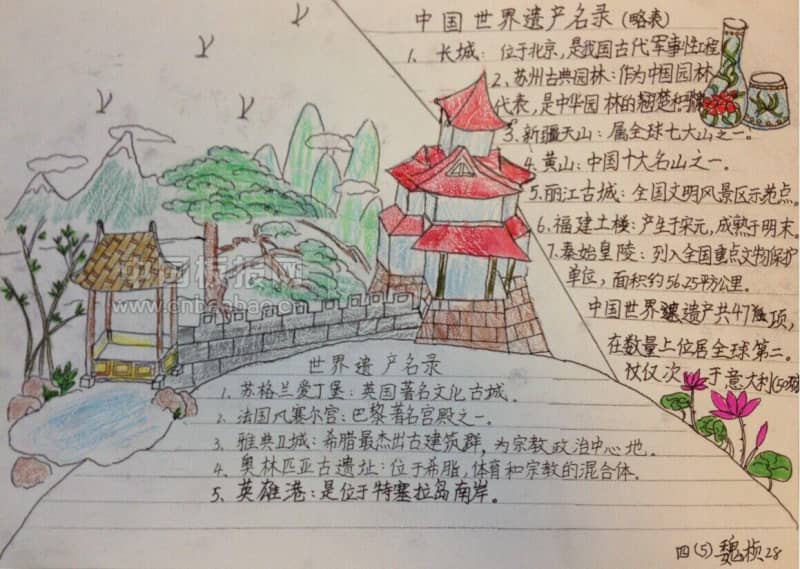 中国世界遗产名录(略表)
1、长城：位于北京，是我国古代军事性工程
2、苏州古典园林：作为中国园林
代表，是中华园林的翘楚和
3、新疆天山：属全球七大山之一。
4、黄山：中国十大名山之一。
5、丽江古城：全国文明风景区示范点。
6、福建土楼：产生于宋元，成熟于明末。
7、秦始皇陵：列入全国重点文物保护
单位，面积约56.25平方公里。
中国世界遗产共47项，
在数量上位居全球第二。
仅仅次于意大利(50项
世界遗产名录
1、苏格兰爱丁堡：英国著名文化古城。
2、法国凡赛尔宫：巴黎著名宫殿之一。
3、雅典卫城：希腊最杰出古建筑群，为宗教政治中心地。
4、奥林匹亚古遗址：位于希腊，体育和宗教的混合体。
5、英雄港：是位于特塞拉岛南岸。
四(5)魏桢28
中国板报网
www.cnbanbao.com